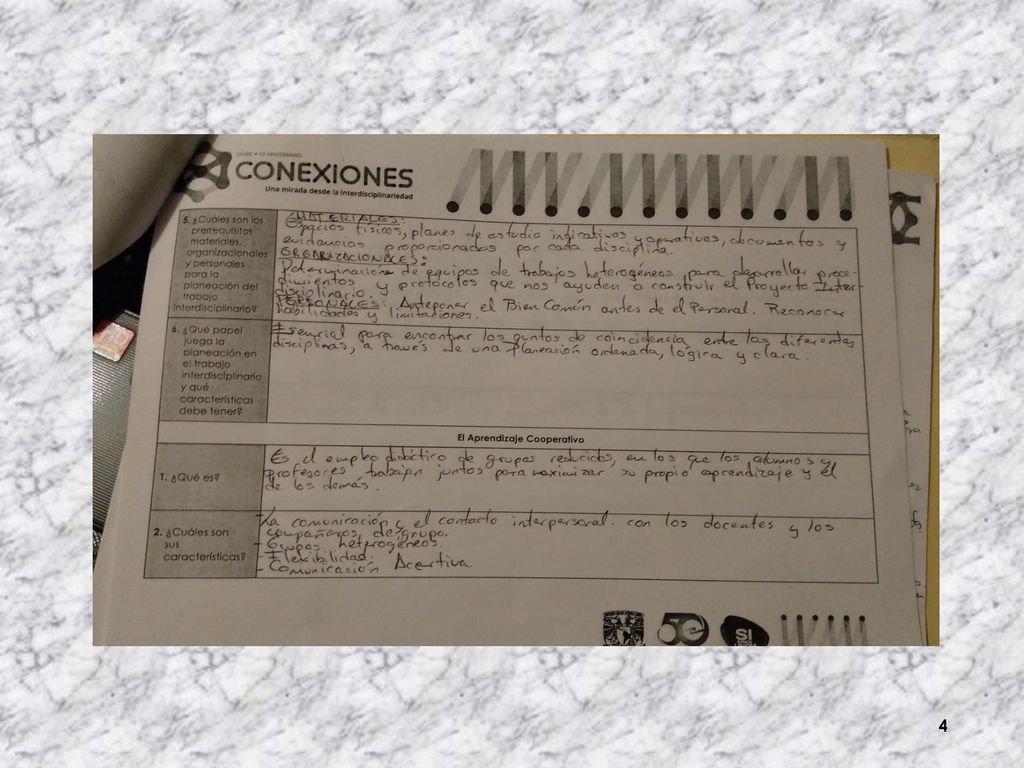 DGIRE • 50 ANIVERSARIO
CONEXIONES
Una mirada desde la interdisciplinariedad
5. ¿Cuáles son los
prerrequisitos
materiales,
organizacionales
y personales
para la
planeación del
trabajo
interdisciplinario?
MATERIALES:
Espacios físicos, planes de estudio indicativos y operativos, documentos y
evidencias proporcionados por cada disciplina.
ORGANIZACIONALES:
Determinación de equipos de trabajos heterogéneos, para desarrollar proce-
dimientos y protocolos que nos ayuden a construir el Proyecto Inter-
disciplinario.
PERSONALES: Anteponer el Bien Común antes de el Personal. Reconocer
habilidades y limitaciones.
6. ¿Qué papel
juega la
planeación en
el trabajo
interdisciplinario
y qué
características
debe tener?
Esencial para encontrar los puntos de coincidencia entre las diferentes
disciplinas, a través de una planeación ordenada, lógica y clara.
El Aprendizaje Cooperativo
1. ¿Qué es?
Es el empleo didáctico de grupos reducidos, en los que los alumnos y
profesores trabajan juntos para maximizar su propio aprendizaje y el
de los demás.
2. ¿Cuáles son
sus
características?
-La comunicación y el contacto interpersonal. con los docentes y los
compañeros de grupo.
- Grupos heterogéneos.
- Flexibilidad.
- Comunicación Acertiva
50
SI
4